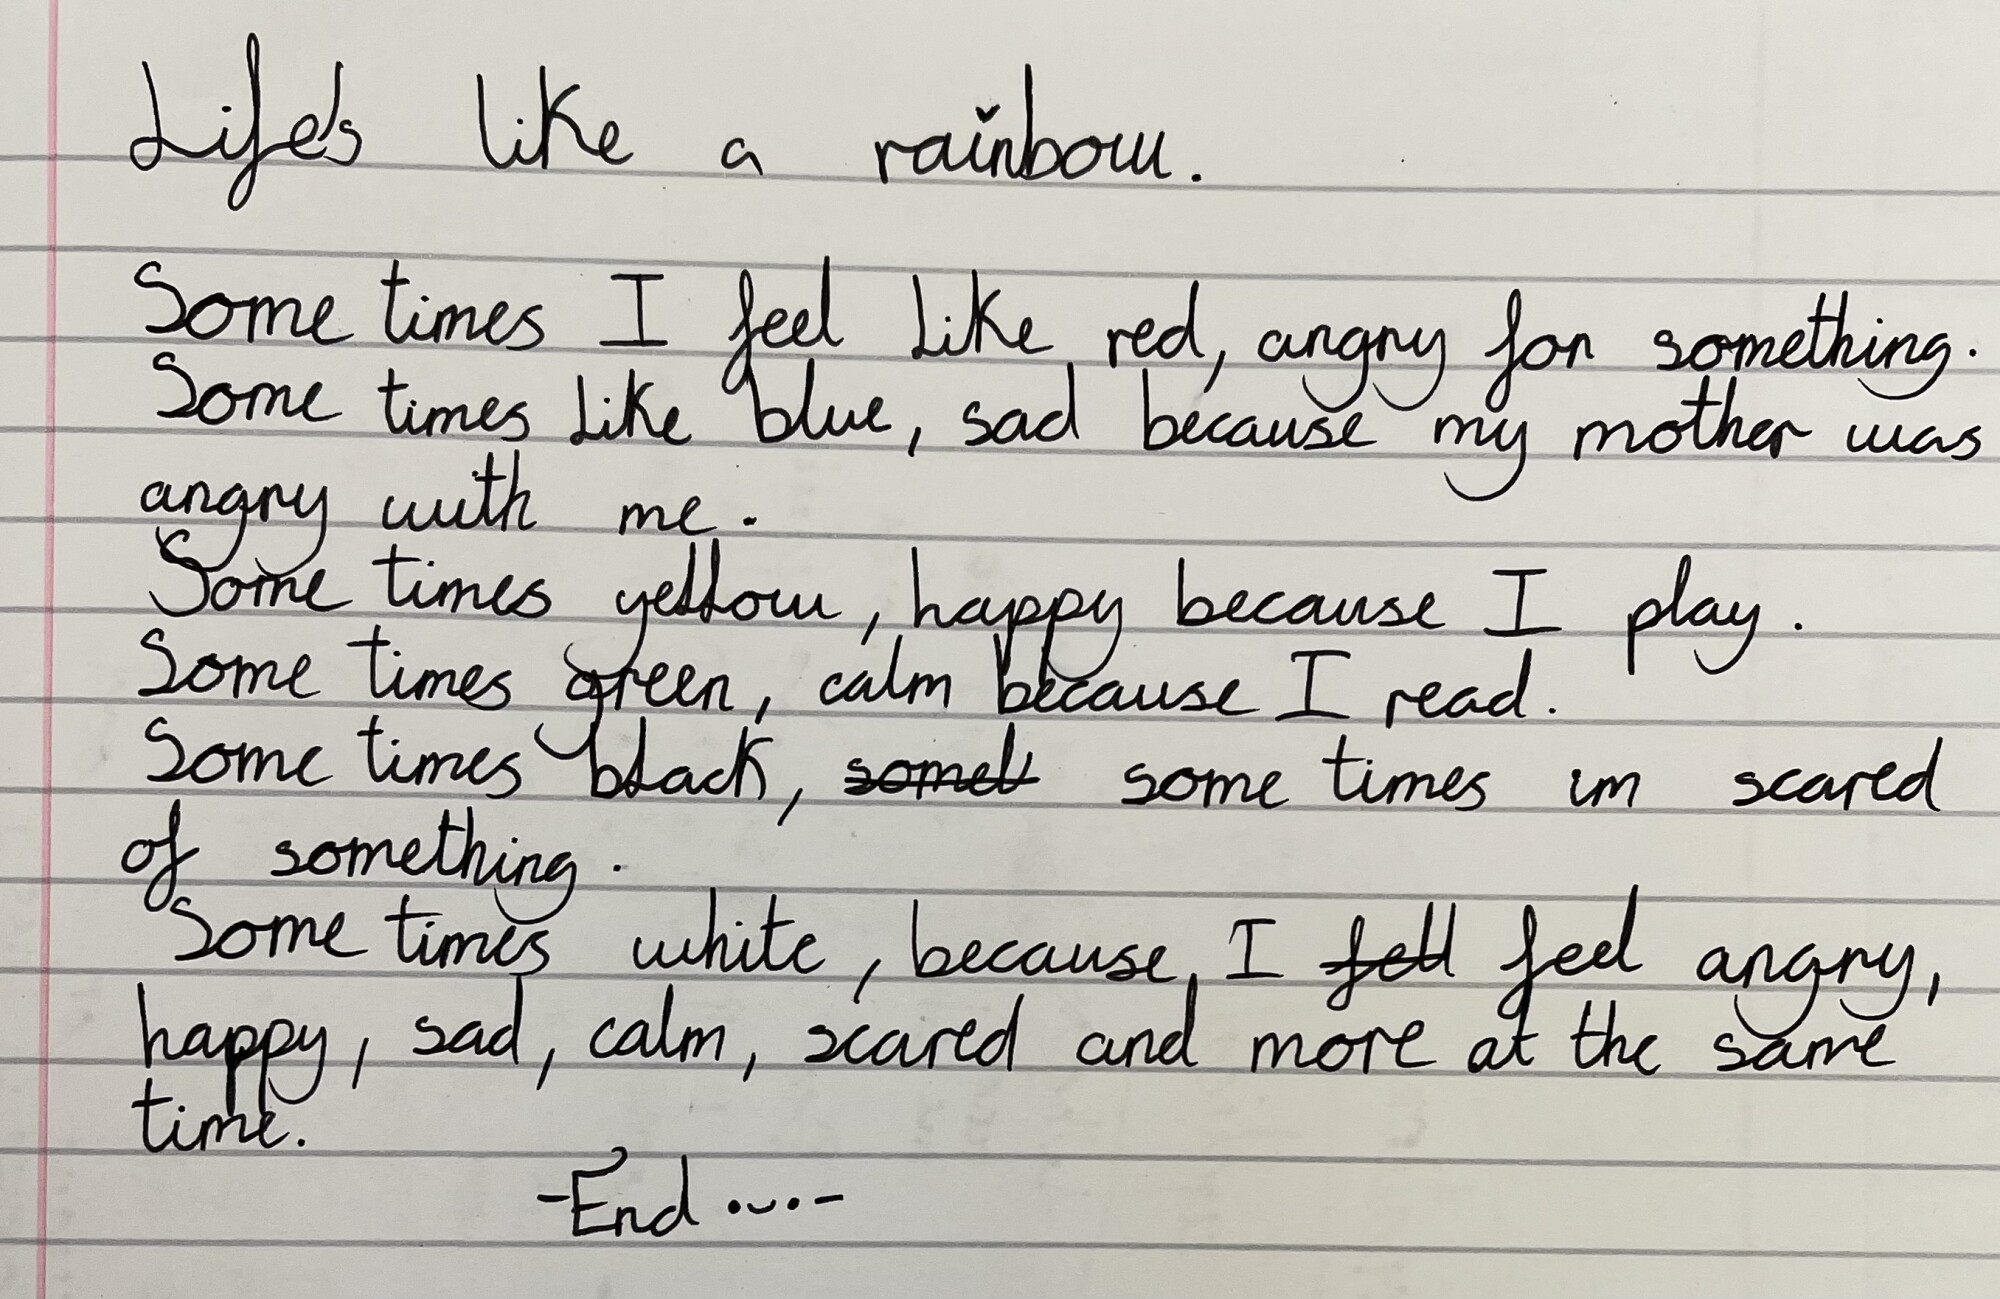 Life's like a rainbow.
Some times I feel like red, angry for something.
Some times like blue, sad because my mother was
angry with me.
Some times yellow, happy because I play.
Some times green, calm because I read.
Some times black, somet some times im scared
of something.
Some times white, because I fell feel angry,
happy, sad, calm, scared and more at the same
time.
-End ....-